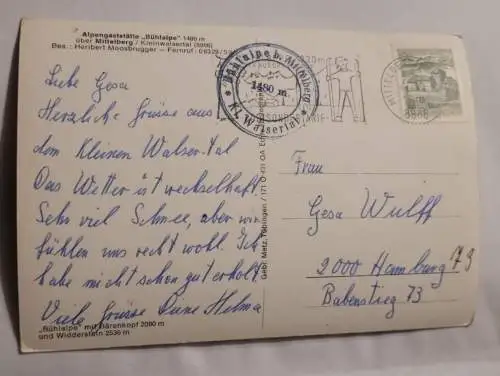 Alpengaststätte „Bühlalpe“ 1480 m
über Mittelberg / Kleinwalsertal
Bes.: Heribert Moosbrugger – Fernruf
Liebe Gesa
Herzliche Grüsse aus
dem Kleinen Walser-tal
Das Wetter ist wechselhaft.
Sehr viel Schnee, aber wir
fühlen uns recht wohl. Ich
habe mich schon gut erholt.
Viele Grüsse Deine Helma
„Bühlalpe“ mit Bärenkopf 2080 m
und Widderstein 2536 m
Bühlalpe b. Mittelberg
1480 m
Kl. Walsertal
Gebr. Metz, Tübingen
Frau
Gesa Wulff
2000 Hamburg 73
Babenstieg 73